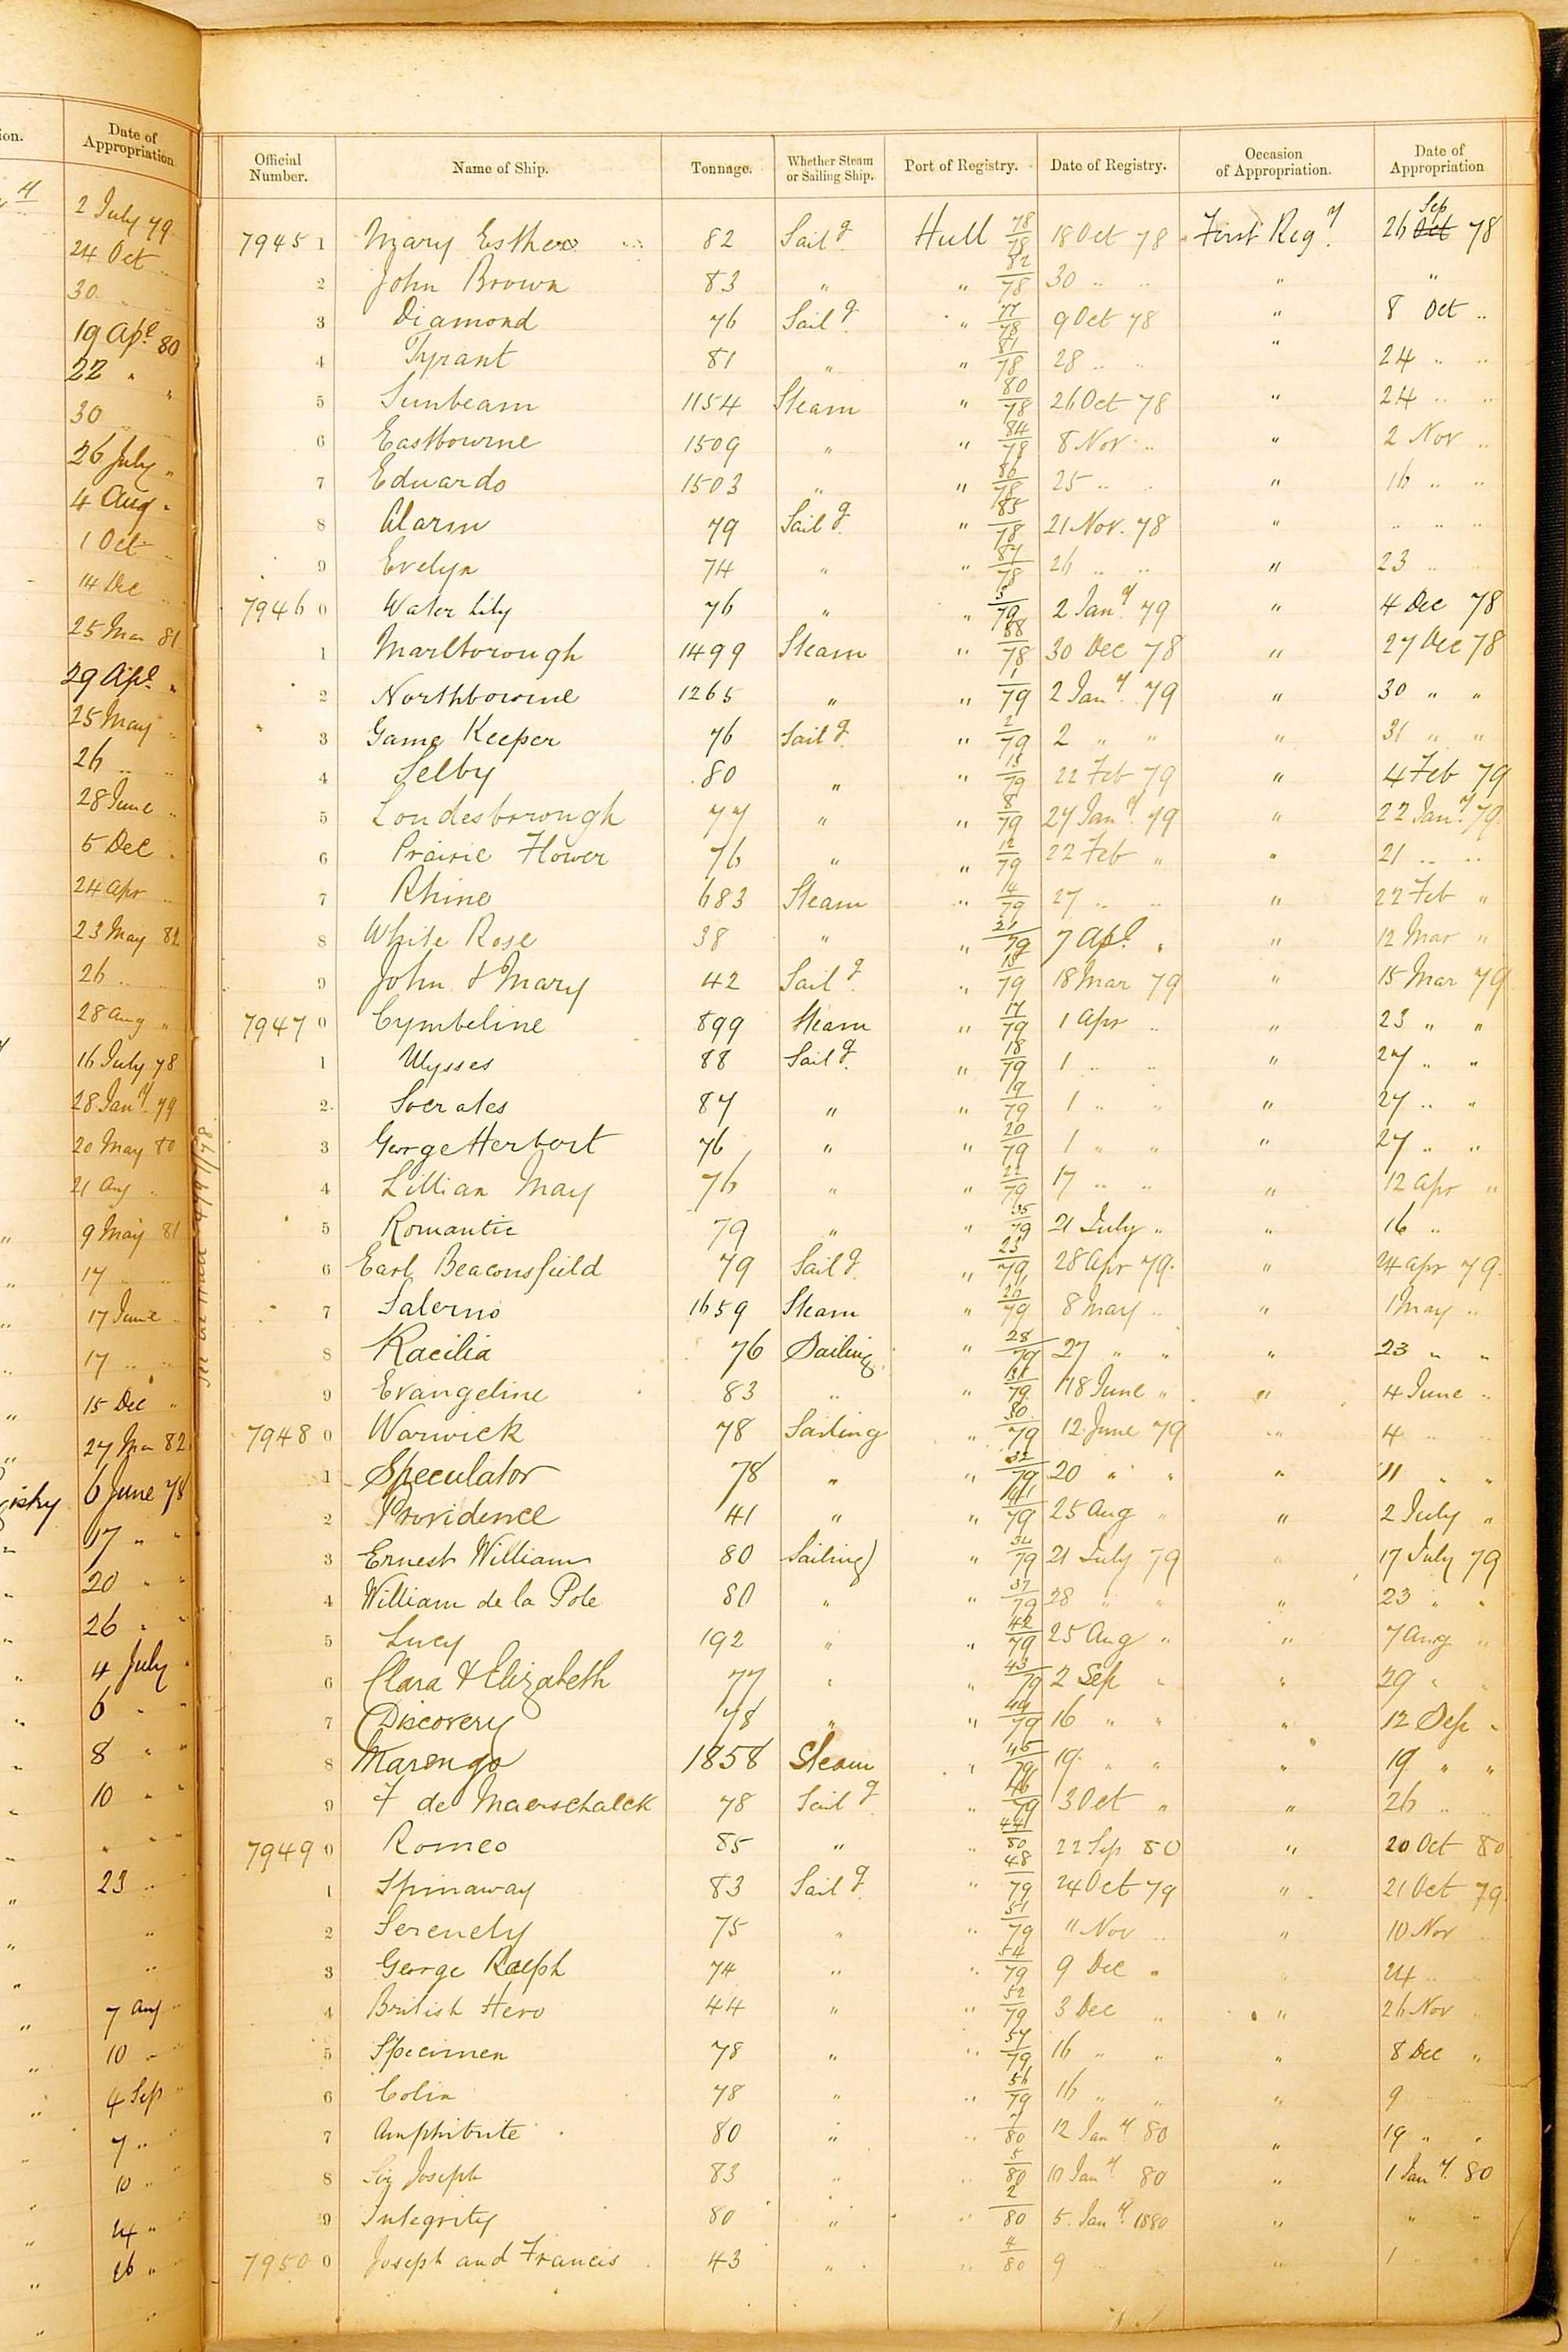 ion. Date of Appropriation
2 July 79
24 Oct "
30 " "
19 Apl 80
22 " "
30 " "
26 July "
4 Aug "
1 Oct "
14 Dec "
25 Mar 81
29 Apl "
25 May "
26 " "
28 June "
5 Dec "
24 Apr "
23 May 82
26 " "
28 Aug "
16 July 78
28 Jany 79
20 May 80
21 Aug "
9 May 81
17 " "
17 June "
17 " "
15 Dec "
27 Mar 82
6 June 78
17 " "
20 " "
26 " "
4 July "
6 " "
8 " "
10 " "
" " "
23 "
"
"
7 Aug "
10 "
4 Sep "
7 "
10 "
14 "
16 "
Official Number. Name of Ship. Tonnage. Whether Steam or Sailing Ship. Port of Registry. Date of Registry. Occasion of Appropriation. Date of Appropriation
7945 1 Mary Esther 82 Sailg Hull 78/78 18 Oct 78 First Regy 26 Sep Oct 78
2 John Brown 83 " " 82/78 30 " " " "
3 Diamond 76 Sailg " 77/78 9 Oct 78 " 8 Oct "
4 Tyrant 81 " " 81/78 28 " " " 24 " "
5 Sunbeam 1154 Steam " 80/78 26 Oct 78 " 24 " "
6 Eastbourne 1509 " " 84/78 8 Nov " " 2 Nov "
7 Eduardo 1503 " " 86/78 25 " " " 16 " "
8 Alarm 79 Sailg " 85/78 21 Nov. 78 " " " "
9 Evelyn 74 " " 87/78 26 " " " 23 " "
7946 0 Water Lily 76 " " 3/79 2 Jany 79 " 4 Dec 78
1 Marlborough 1499 Steam " 88/78 30 Dec 78 " 27 Dec 78
2 Northbourne 1265 " " 1/79 2 Jany 79 " 30 " "
3 Game Keeper 76 Sailg " 2/79 2 " " " 31 " "
4 Selby 80 " " 13/79 22 Feb 79 " 4 Feb 79
5 Londesborough 77 " " 8/79 27 Jany 79 " 22 Jany 79
6 Prairie Flower 76 " " 12/79 22 Feb " " 21 " "
7 Rhino 683 Steam " 14/79 27 " " " 22 Feb "
8 White Rose 38 " " 21/79 7 Apl " " 12 Mar "
9 John & Mary 42 Sailg " 15/79 18 Mar 79 " 15 Mar 79
7947 0 Cymbeline 899 Steam " 17/79 1 Apr " " 23 " "
1 Ulysses 88 Sailg " 18/79 1 " " " 27 " "
2 Socrates 87 " " 19/79 1 " " " 27 " "
3 George Herbert 76 " " 20/79 1 " " " 27 " "
4 Lillian May 76 " " 22/79 17 " " " 12 Apr "
5 Romantic 79 " " 35/79 21 July " " 16 "
6 Earl Beaconsfield 79 Sailg " 23/79 28 Apr 79. " 24 Apr 79.
7 Salerno 1659 Steam " 26/79 8 May " " 1 May "
8 Racilia 76 Sailing " 28/79 27 " " " 23 " "
9 Evangeline 83 " " 31/79 18 June " " 4 June "
7948 0 Warwick 78 Sailing " 30/79 12 June 79 " 4 " "
1 Speculator 78 " " 32/79 20 " " " 11 " "
2 Providence 41 " " 41/79 25 Aug " " 2 July "
3 Ernest William 80 Sailing " 34/79 21 July 79 " 17 July 79
4 William de la Pole 80 " " 37/79 28 " " " 23 " "
5 Lucy 192 " " 42/79 25 Aug " " 7 Aug "
6 Clara & Elizabeth 77 " " 43/79 2 Sep " " 29 " "
7 Discovery 78 " " 44/79 16 " " " 12 Sep "
8 Marengo 1858 Steam " 45/79 19 " " " 19 " "
9 F de Maerschalck 78 Sailg " 46/79 3 Oct " " 26 " "
7949 0 Romeo 85 " " 441/80 22 Sep 80 " 20 Oct 80
1 Spinaway 83 Sailg " 48/79 24 Oct 79 " 21 Oct 79
2 Serenely 75 " " 51/79 11 Nov " " 10 Nov "
3 George Ralph 74 " " 54/79 9 Dec " 24 "
4 British Hero 44 " " 52/79 3 Dec " " 26 Nov
5 Specimen 78 " " 57/79 16 " " " 8 Dec "
6 Colin 78 " " 56/79 16 " " " 9
7 Amphitrite 80 " " 7/80 12 Jany 80 " 19 " "
8 Sir Joseph 83 " " 5/80 10 Jany 80 " 1 Jany 80
9 Integrity 80 " " 2/80 5 Jany 1880 " " "
7950 0 Joseph and Francis 43 " " 4/80 9 " 1 "